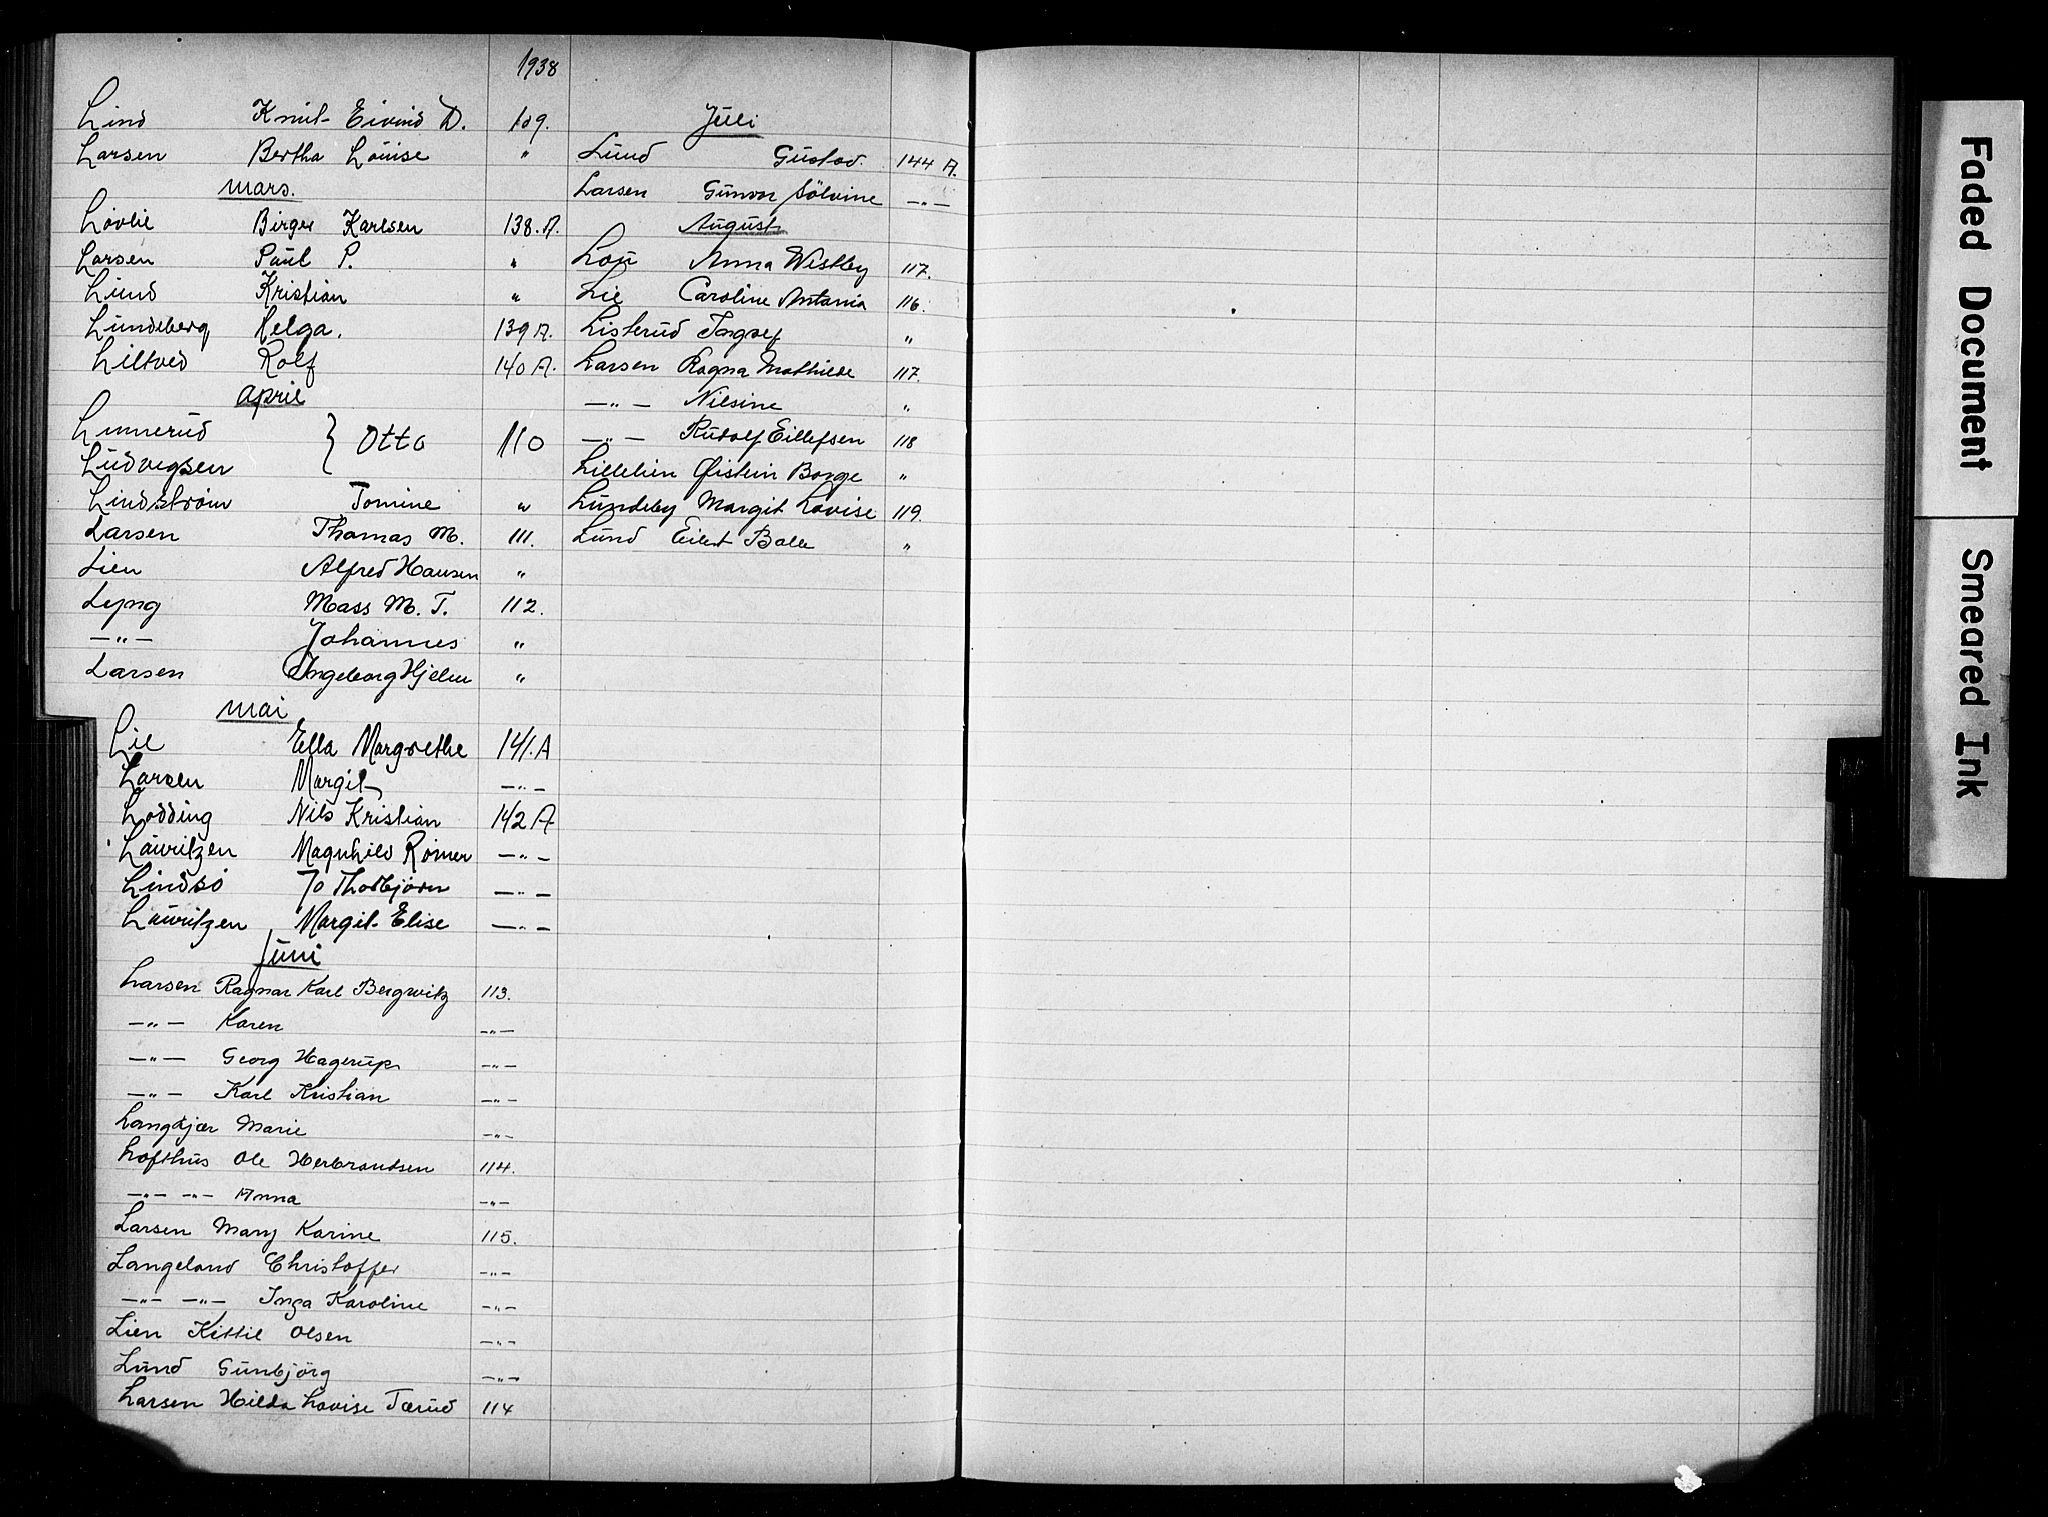 1938
Lind Knut Eivind D. 109.
Larsen Bertha Louise "
mars.
Lövlie Birger Karlsen 138.A.
Larsen Paul P. "
Lund Kristian "
Lundeberg Helga. 139 A.
Liltved Rolf 140 A.
April
Linnerud } Otto 110
Ludvigsen
Lindström Tomine "
Larsen Thomas M. 111.
Lien Alfred Hansen "
Lyng Mass M. T. 112.
—"— Johannes "
Larsen Ingeborg Hjelm "
mai
Lie Ella Margrethe 141.A
Larsen Margit —"—
Lodding Nils Kristian 142 A
Lauritzen Magnhild Römer —"—
Lindsö Jo Thorbjörn —"—
Lauritzen Margit Elise —"—
Juni
Larsen Ragnar Karl Bergwitz 113.
—"— Karen —"—
—"— Georg Hagerup —"—
—"— Karl Kristian —"—
Langkjær Marie —"—
Lofthus Ole Herbrandsen 114.
—"— —"— Anna —"—
Larsen Mary Karine 115.
Langeland Christoffer —"—
—"— —"— Inga Karoline —"—
Lien Kittil Olsen —"—
Lund Gunbjörg —"—
Larsen Hilda Lovise Tærud 114
Juli
Lund Gustav. 144 A.
Larsen Gunvor Sölvine —"—
August
Lou Anna Westby 117.
Lie Caroline Antania 116.
Listerud Ingvef "
Larsen Ragna Mathilde 117.
—"— Nilsine "
—"— Rudolf Eillefsen 118
Lillelien Øistein Borge "
Lundeby Margit Lovise 119.
Lund Eilert Balle "
Faded Document
Smeared Ink